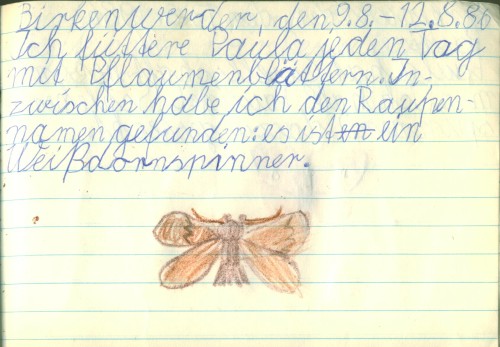 Birkenwerder, den 9.8.-12.8.86
Ich füttere Paula jeden Tag
mit Pflaumenblättern. In-
zwischen habe ich den Raupen-
namen gefunden: es ist ein
Weißdornspinner.